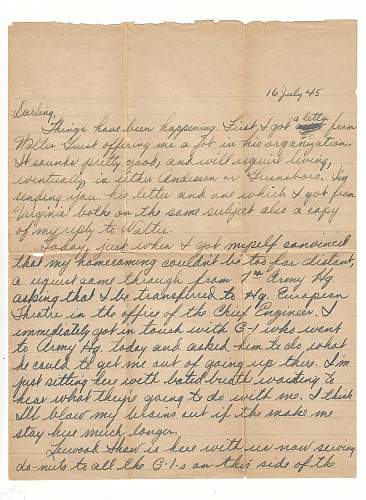 16 July 45
Darling,
Things have been happening. First, I got a letter from
Walter Guest offering me a job in his organization.
It sounds pretty good, and will require living,
eventually, in either Anderson or Greensboro. I'm
sending you his letter and one which I got from
Virginia bothe on the same subject also a copy
of my reply to Walter.
Today, just when I got myself convinced
that my homecoming couldn't be too far distant,
a request came through from 7th Army Hq.
asking that I be transferred to Hq. European
Theatre in the office of the Chief Engineer. I
immediately got in touch with G-1 who went
to Army Hq. today and asked him to do what
he could to get me out of going up there. I'm
just sitting here with bated breath waiting to
hear what they're going to do with me. I think
I'll blow my brains out if the make me
stay here much longer.
Shaw is here with us now serving
do-nuts to all the G-I-s on this side of the